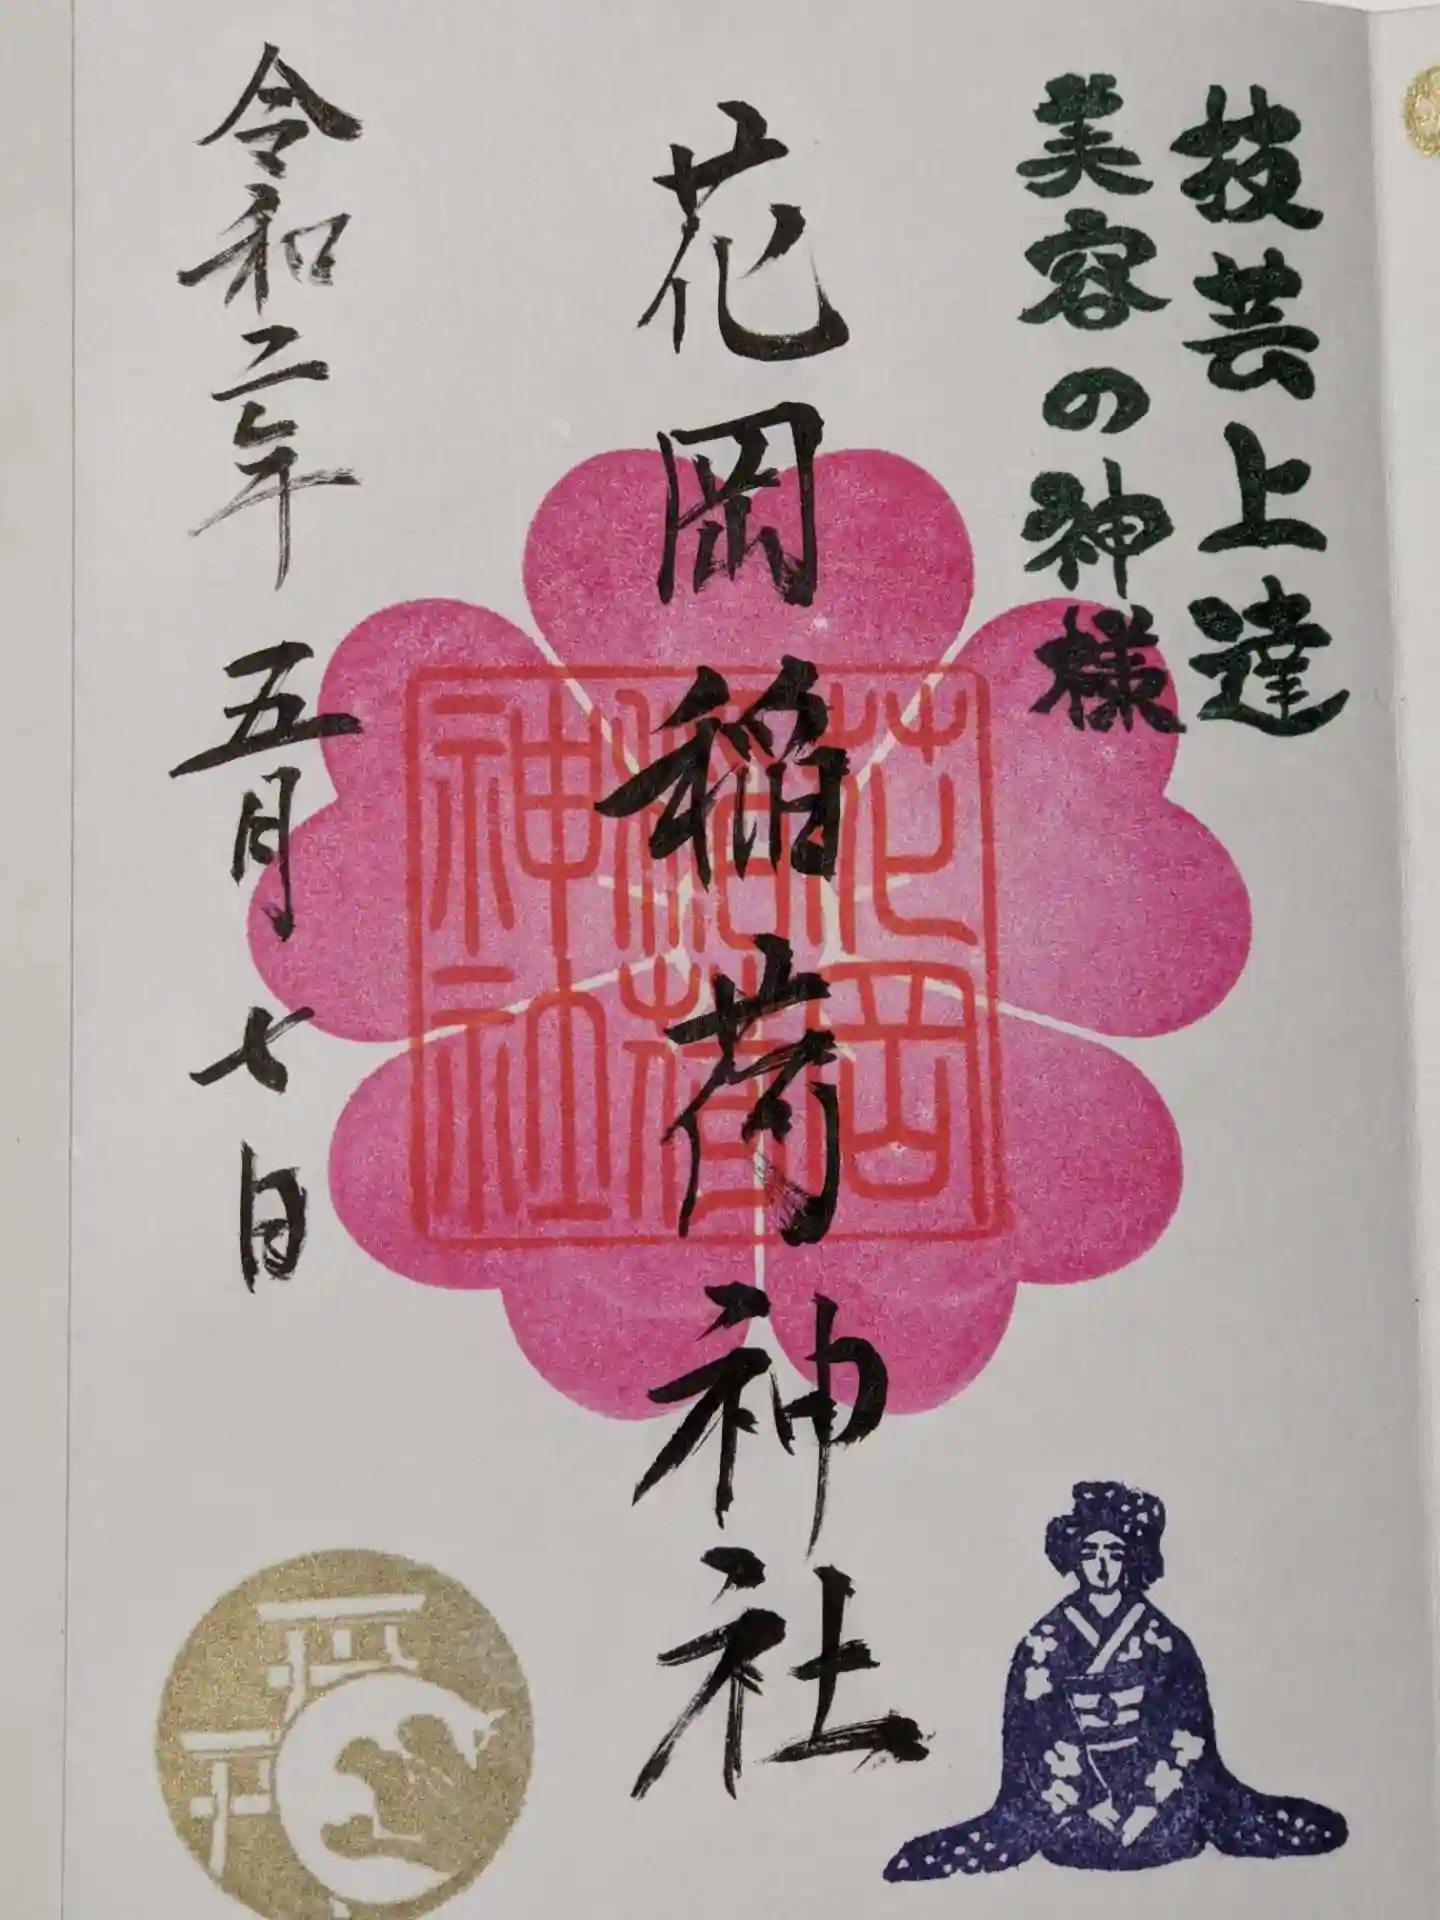 技芸上達
美容の神様
花岡稲荷神社
花岡
稲荷
神社
令和二年 五月七日